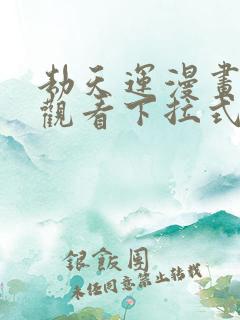 劫天運漫畫
觀看下拉式
銀飯團
未经同意禁止转载